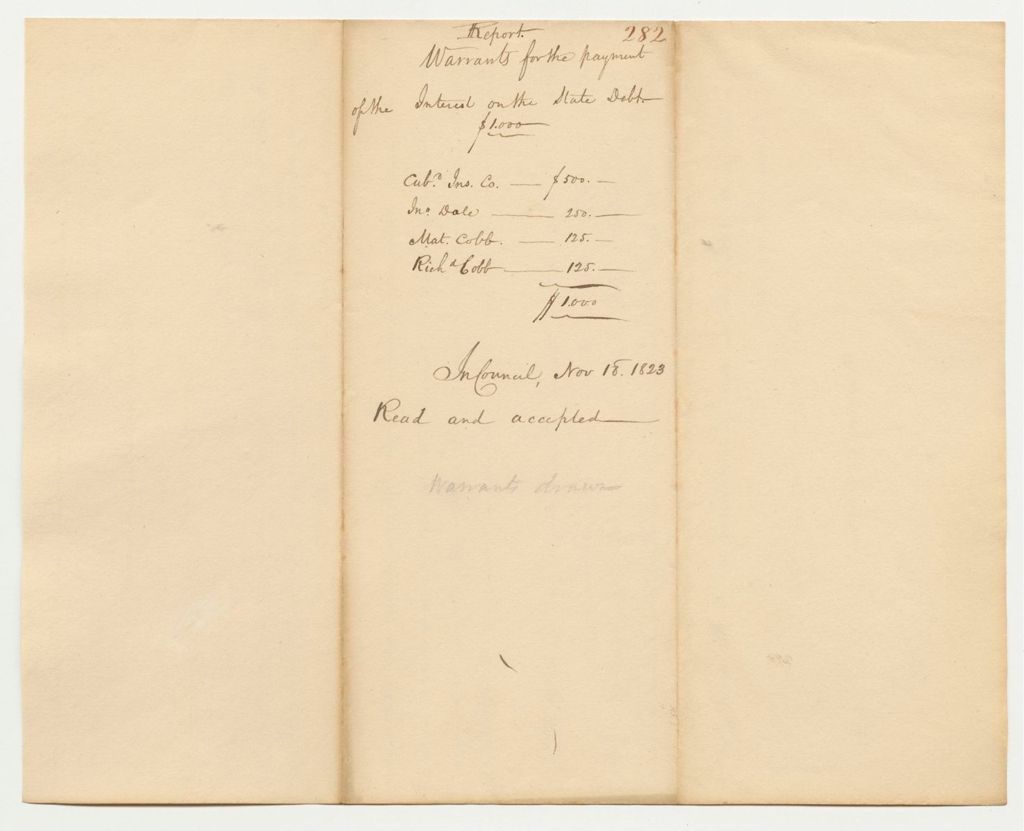 Report. 282
Warrants for the payment
of the Interest on the State Debt
$1.000
Cubd. Ins. Co. — $500. —
Jno. Dale — 250. —
Mat. Cobb. — 125. —
Richd Cobb — 125. —
$1.000
In Council, Nov 18. 1823
Read and accepted —
Warrants drawn